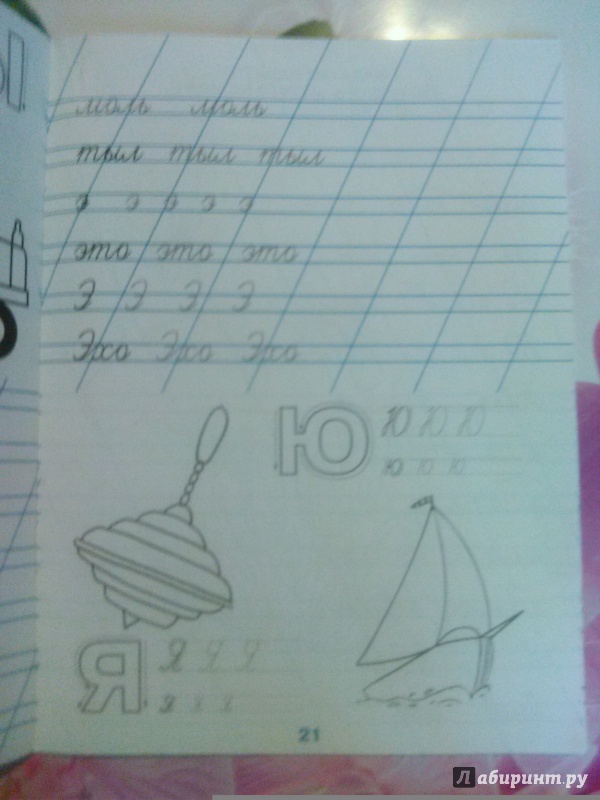 моль моль
тыл тыл тыл
э э э э э
это это это
Э Э Э Э
Эхо Эхо Эхо
Ю Ю Ю Ю
ю ю ю
Я Я Я Я
я я я
21
Лабиринт.ру